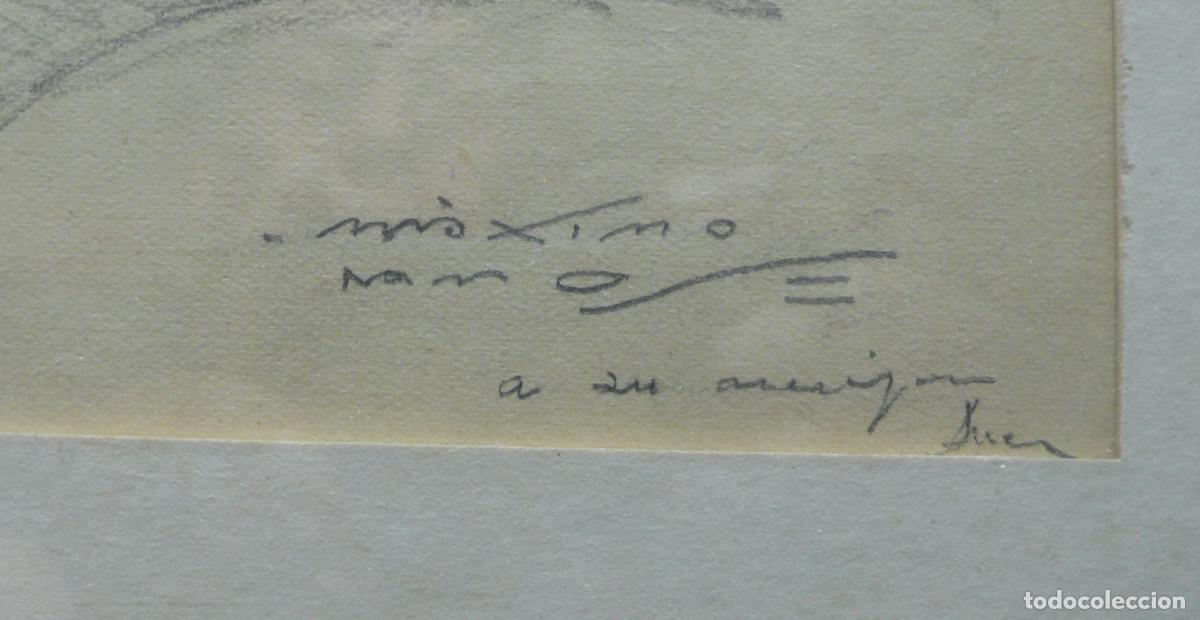 Màximo
Ramos
a su amigo
todocoleccion